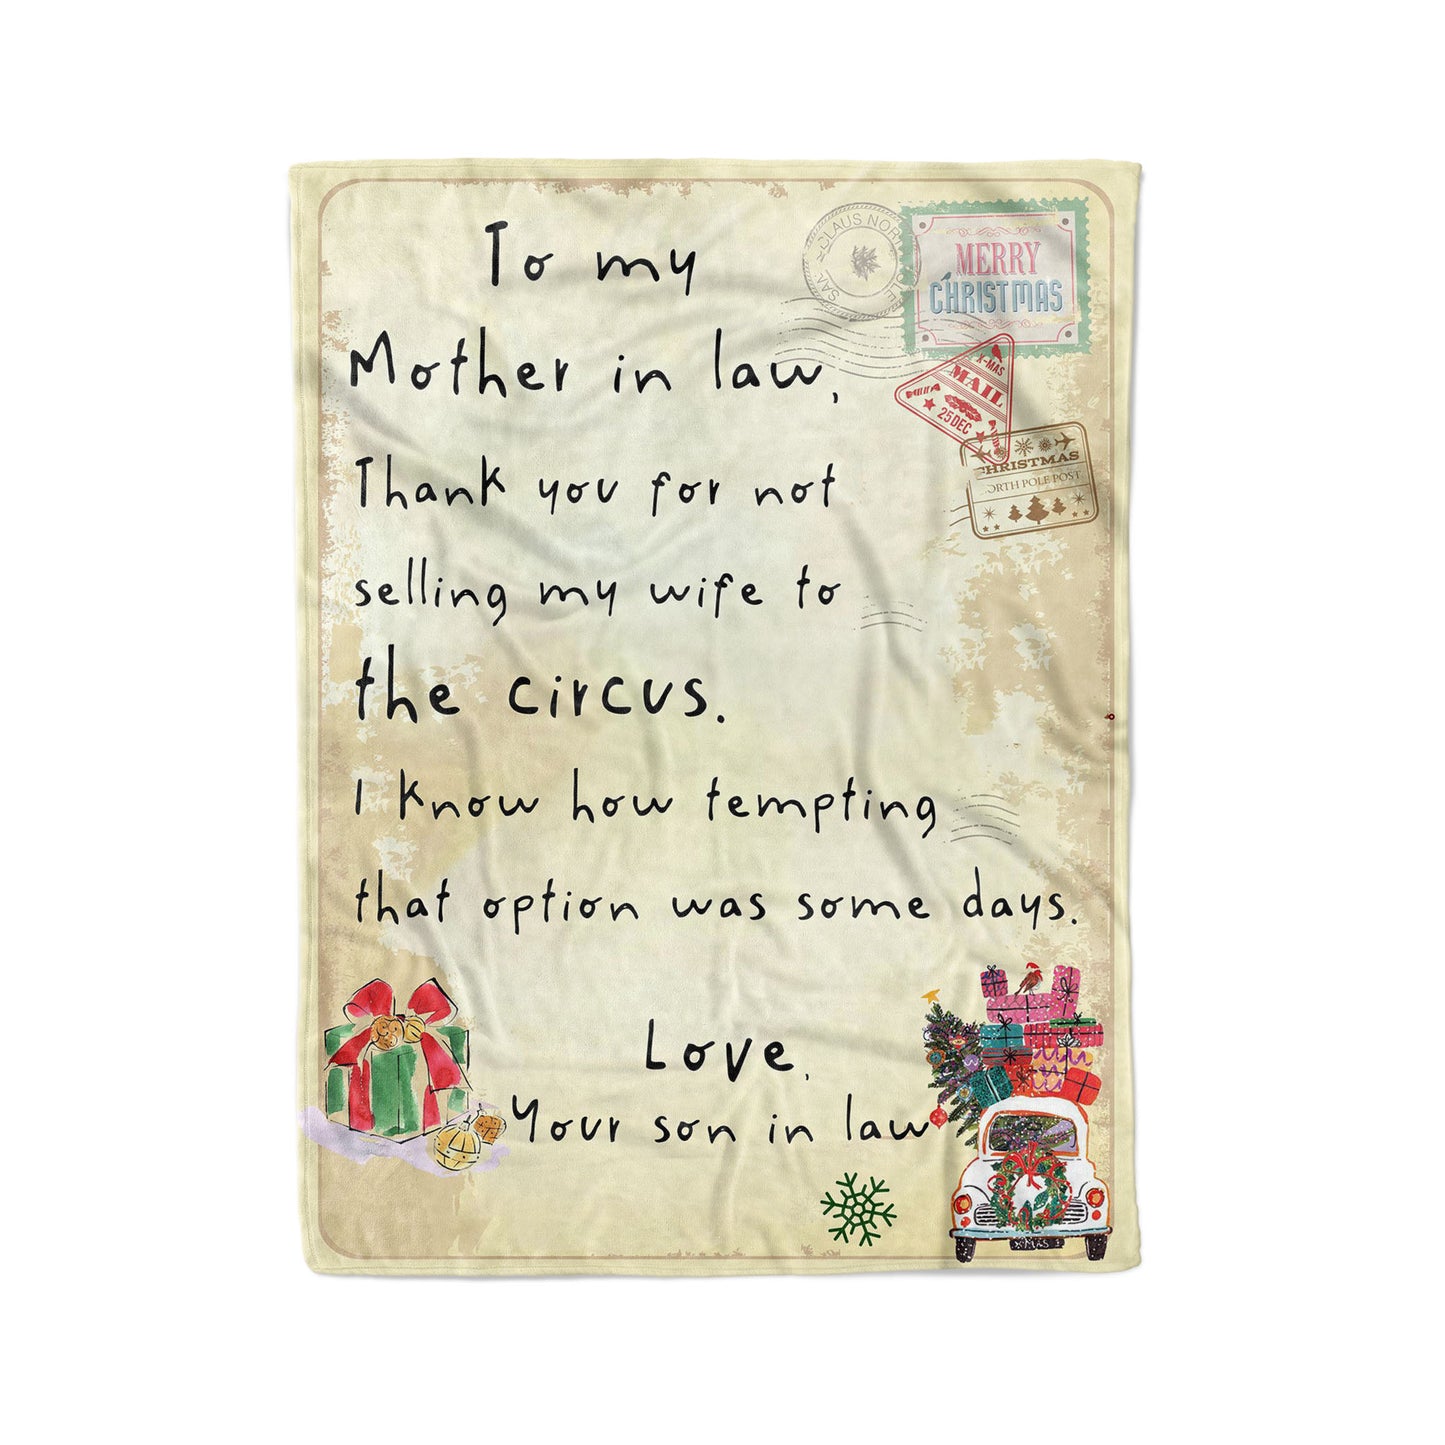 To my
Mother in law,
Thank you for not
selling my wife to
the circus.
I know how tempting
that option was some days.
Love,
Your son in law
CLAUS NOR
MERRY
CHRISTMAS
X-MAS
MAIL
25 DEC
HRISTMAS
ORTH POLE POST
XMAS